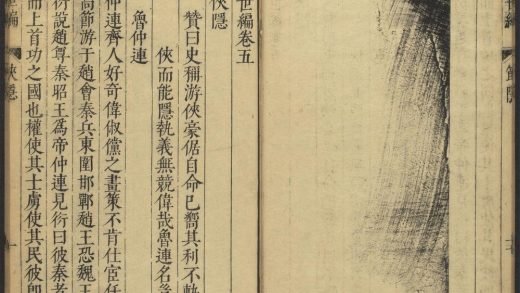 節隱
世編卷五
俠隱
贊曰史稱游俠豪倨自命已嚮其利不軌
俠而能隱執義無競偉哉魯連名
魯仲連
仲連齊人好奇偉俶儻之畫策不肯仕宦任
高節游于趙會秦兵東圍邯鄲趙王恐魏王
衍說趙尊秦昭王爲帝仲連見衍曰彼秦者
而上首功之國也權使其士虜使其民彼即
世編 俠隱 一